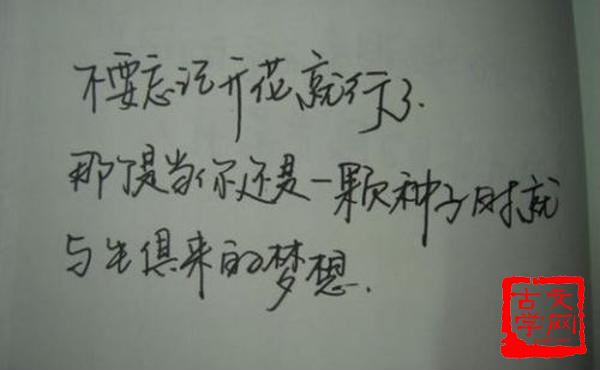 不要忘记开花就行了.
那可是当你还是一颗种子时就
与生俱来的梦想.
古文
学网